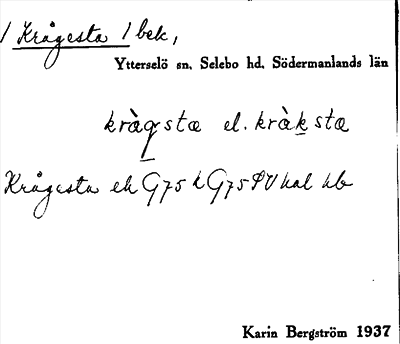 / Krågesta / bek,
Ytterselö sn. Selebo hd. Södermanlands län
kràgstæ el. kràkstæ
Krågesta ek G75 k G75 hal hb
Karin Bergström 1937